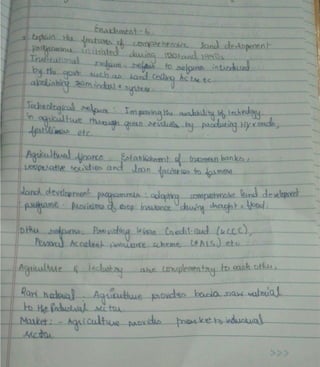 Enrichment - 6
Explain the features of comprehensive land development
programme initiated during 1980s and 1990s
Institutional reforms, refers to reforms introduced
by the govt such as Land Ceiling Act etc
abolishing zamindari system.
Technological reforms : Improving the availability of technology
in agriculture through green revolution by producing HYV seeds,
fertilisers etc
Agricultural finance - Establishment of Grameen banks,
cooperative societies and loan facilities to farmers
Land development programmes : adopting comprehensive land development
programe - Provisions of crop insurance during drought, flood.
Other reforms : Providing Kisan Credit card (KCC),
Personal Accident insurance scheme (PAIS) etc
Agriculture & Industry are complementry to each other.
Raw material - Agriculture provides basic raw material
to the Industrial sector
Market : - Agriculture provides market to industrial
sector
>>>